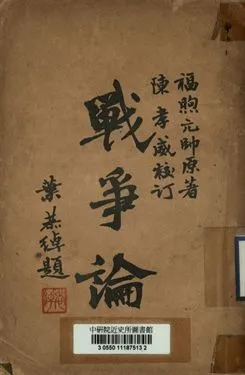 福煦元帥原著
陳孝威校訂
戰爭論
葉恭綽題
中研院近史所圖書館
3 0550 11187513 2